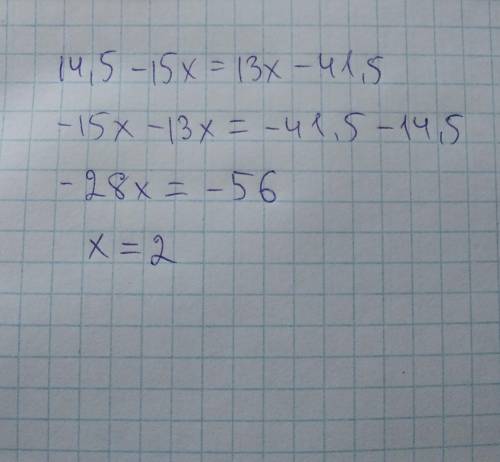 14,5 - 15x = 13x - 41,5
-15x - 13x = -41,5 - 14,5
-28x = -56
x = 2